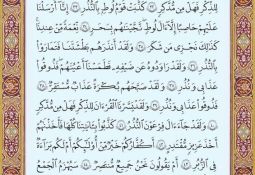 لِلذِّكْرِ فَهَلْ مِن مُّدَّكِرٍ ٣٢ كَذَّبَتْ قَوْمُ لُوطٍۭ بِٱلنُّذُرِ ٣٣ إِنَّآ أَرْسَلْنَا
عَلَيْهِمْ حَاصِبًا إِلَّآ ءَالَ لُوطٍ نَّجَّيْنَٰهُم بِسَحَرٍ ٣٤ نِّعْمَةً مِّنْ عِندِنَا
كَذَٰلِكَ نَجْزِى مَن شَكَرَ ٣٥ وَلَقَدْ أَنذَرَهُم بَطْشَتَنَا فَتَمَارَوْا۟
بِٱلنُّذُرِ ٣٦ وَلَقَدْ رَٰوَدُوهُ عَن ضَيْفِهِۦ فَطَمَسْنَآ أَعْيُنَهُمْ فَذُوقُوا۟
عَذَابِى وَنُذُرِ ٣٧ وَلَقَدْ صَبَّحَهُم بُكْرَةً عَذَابٌ مُّسْتَقِرٌّ ٣٨
فَذُوقُوا۟ عَذَابِى وَنُذُرِ ٣٩ وَلَقَدْ يَسَّرْنَا ٱلْقُرْءَانَ لِلذِّكْرِ فَهَلْ مِن مُّدَّكِرٍ
٤٠ وَلَقَدْ جَآءَ ءَالَ فِرْعَوْنَ ٱلنُّذُرُ ٤١ كَذَّبُوا۟ بِـَٔايَٰتِنَا كُلِّهَا فَأَخَذْنَٰهُمْ
أَخْذَ عَزِيزٍ مُّقْتَدِرٍ ٤٢ أَكُفَّارُكُمْ خَيْرٌ مِّنْ أُو۟لَٰٓئِكُمْ أَمْ لَكُم بَرَآءَةٌ
فِى ٱلزُّبُرِ ٤٣ أَمْ يَقُولُونَ نَحْنُ جَمِيعٌ مُّنتَصِرٌ ٤٤ سَيُهْزَمُ ٱلْجَمْعُ